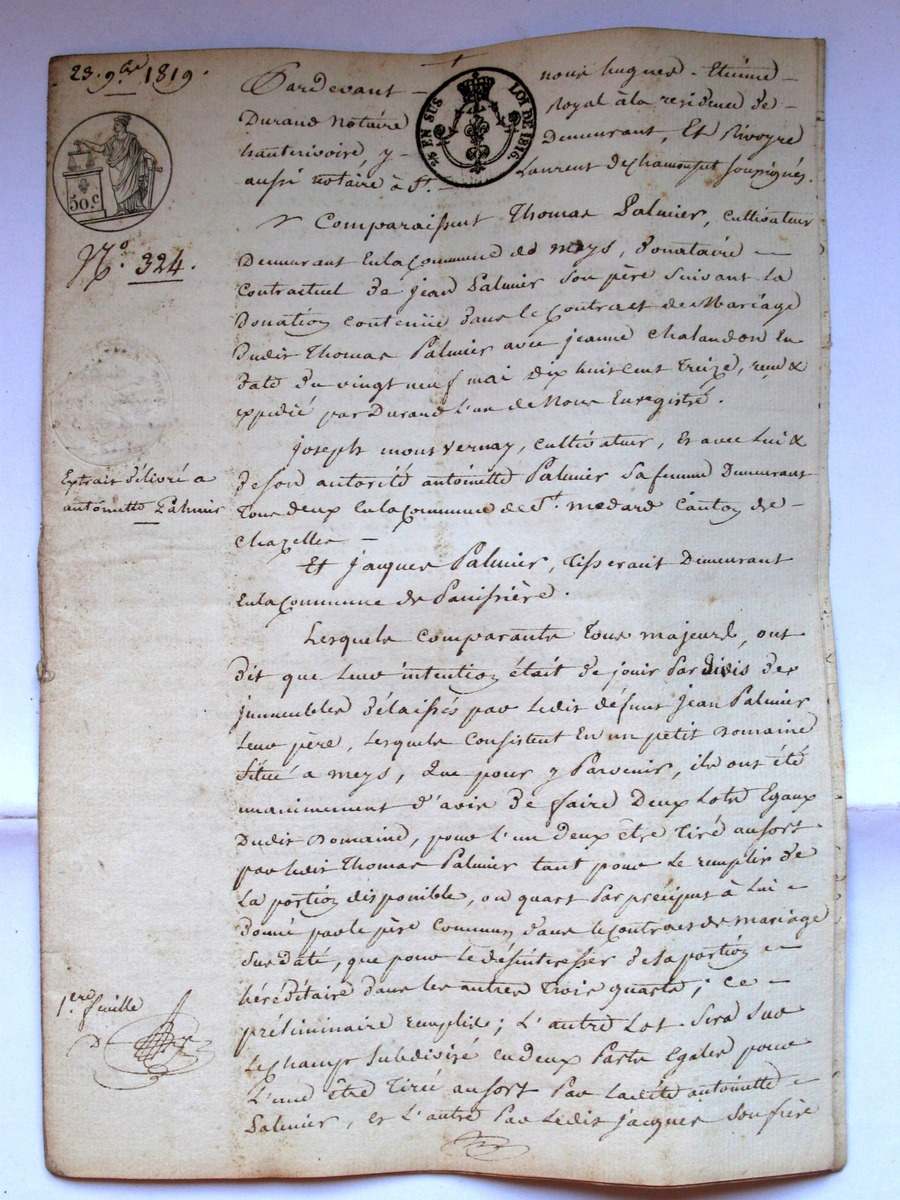 23. 9bre 1819.
Pardevant nous hugues-Etienne
Durand Notaire Royal à la residence de
hauterivoire, y Demeurant, Et Rivoyre
aussi notaire à St. Laurent de Chamousset soussignés.
¼ EN SUS LOI DE 1816
50.c
N.o 324.
Comparaissent Thomas Palmier, cultivateur
Demeurant En la Commune de meys, Donataire
Contractuel de jean Palmier son père suivant La
Donation contenüe dans le Contract de Mariage
Dudit Thomas Palmier avec jeanne Chalandon En
Date du vingt neuf mai dix huit cent Treize, reçu &
expédié par Durand L'un de Nous Enregistré.
joseph montvernay, cultivateur, Et avec Lui &
de son autorité antoinette Palmier sa femme Demeurant
Tous deux En la Commune de St. medard Canton de
Chazelles
Extrait délivré a
antoinette Palmier
Et jacques Palmier, Tisserant Demeurant
En la Commune de Panissière.
Lesquels comparants Tous majeurs, ont
dit que Leur intention était de jouir Par divis des
jmmeubles délaissés par Ledit défunt jean Palmier
Leur père, Lesquels Consistent En un petit Domaine
situé a meys, Que pour y Parvenir, ils ont été
unanimement d'avis de faire Deux Lots Egaux
Dudit Domaine, pour L'un deux être Tiré au sort
par Ledit Thomas Palmier tant pour Le remplir de
La portion disponible, ou quart Par préciput à Lui
donné par le père Commun dans le Contract de mariage
sus daté, que pour le désintéresser de sa portion
héréditaire dans les autres Trois quarts; Ce
préliminaire remplis; L'autre Lot Sera Sur
Le Champ Subdivisé en deux Parts Egales pour
L'une être Tirée au sort Par Ladite antoinette
Palmier, et L'autre Par Ledit jacques son frère
1.ere feuille